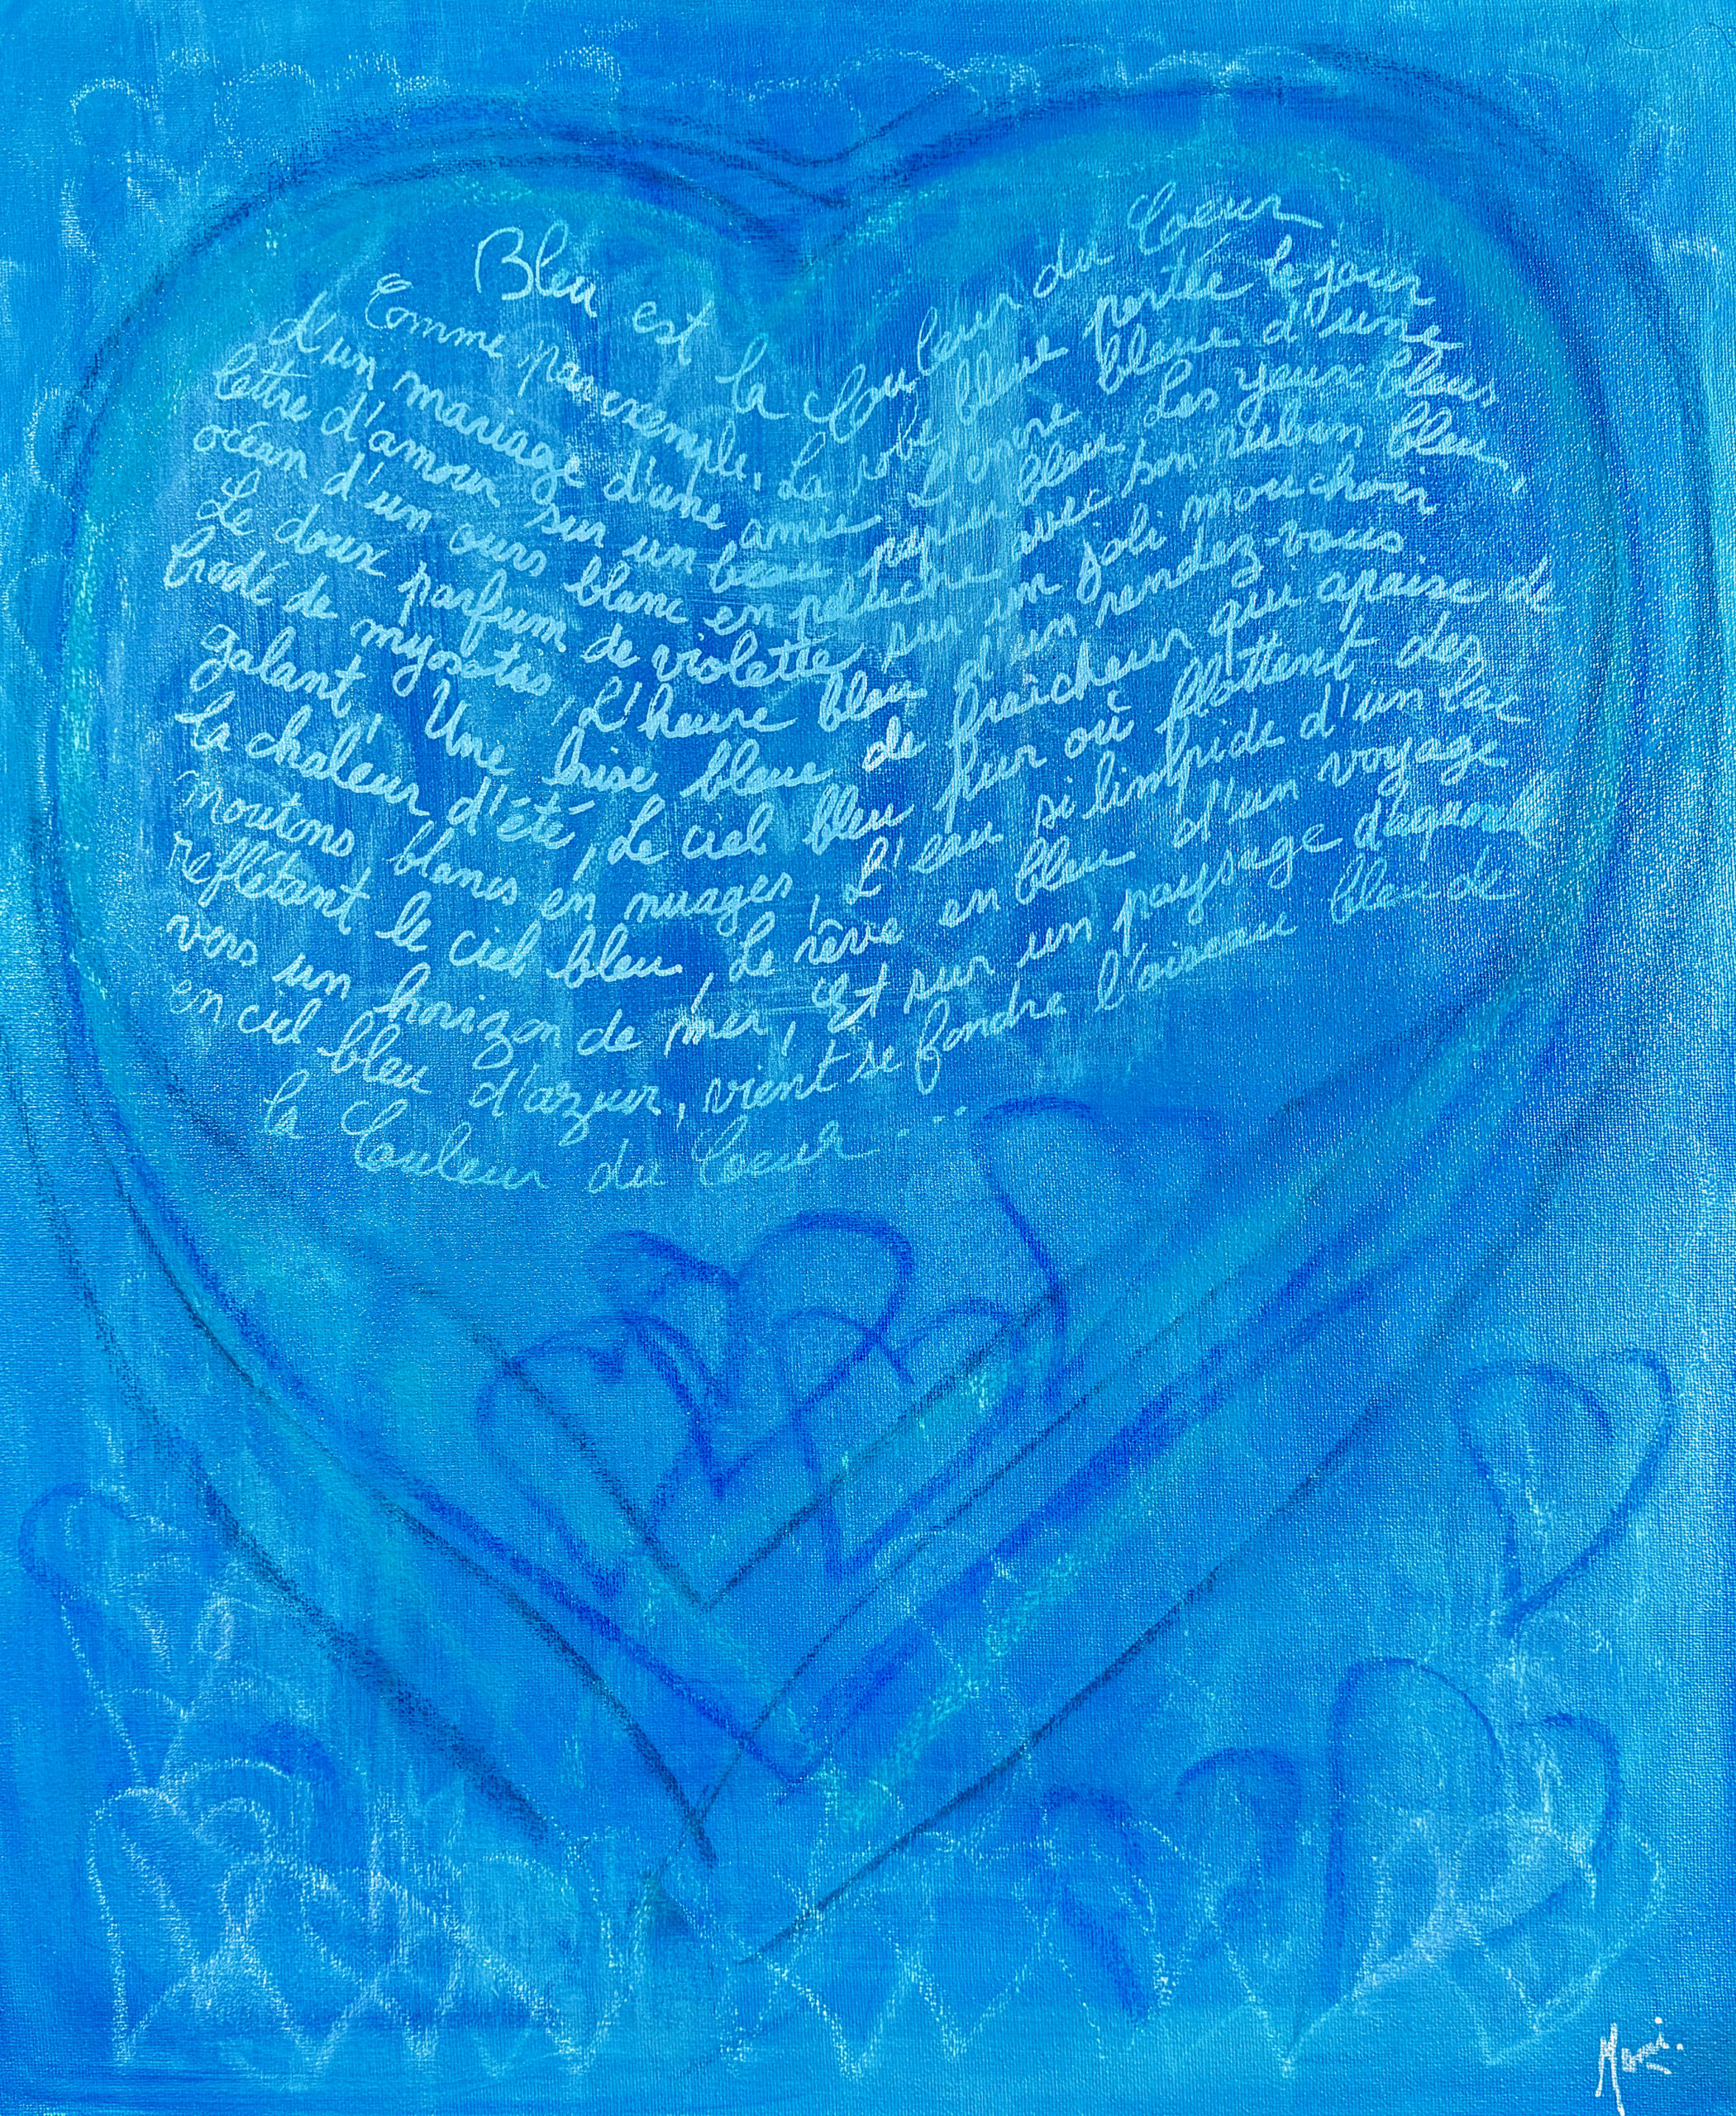 Bleu est la Couleur du Coeur
Comme par exemple, La robe bleue portée le jour
d'un mariage d'une amie L'encre bleue d'une
lettre d'amour sur un beau papier bleu Les yeux bleus
océan d'un ours blanc en peluche avec son ruban bleu,
Le doux parfum de violette sur un joli mouchoir
brodé de myosotis, L'heure bleu d'un rendez-vous
galant, Une brise bleue de fraîcheur qui apaise de
la chaleur d'été, Le ciel bleu pur où flottent des
moutons blancs en nuages, L'eau si limpide d'un lac
reflétant le ciel bleu, Le rêve en bleu d'un voyage
vers un horizon de mer, Et sur un paysage
en ciel bleu d'azur, vient se fondre l'oiseau bleu de
la Couleur du Coeur...
Moni.